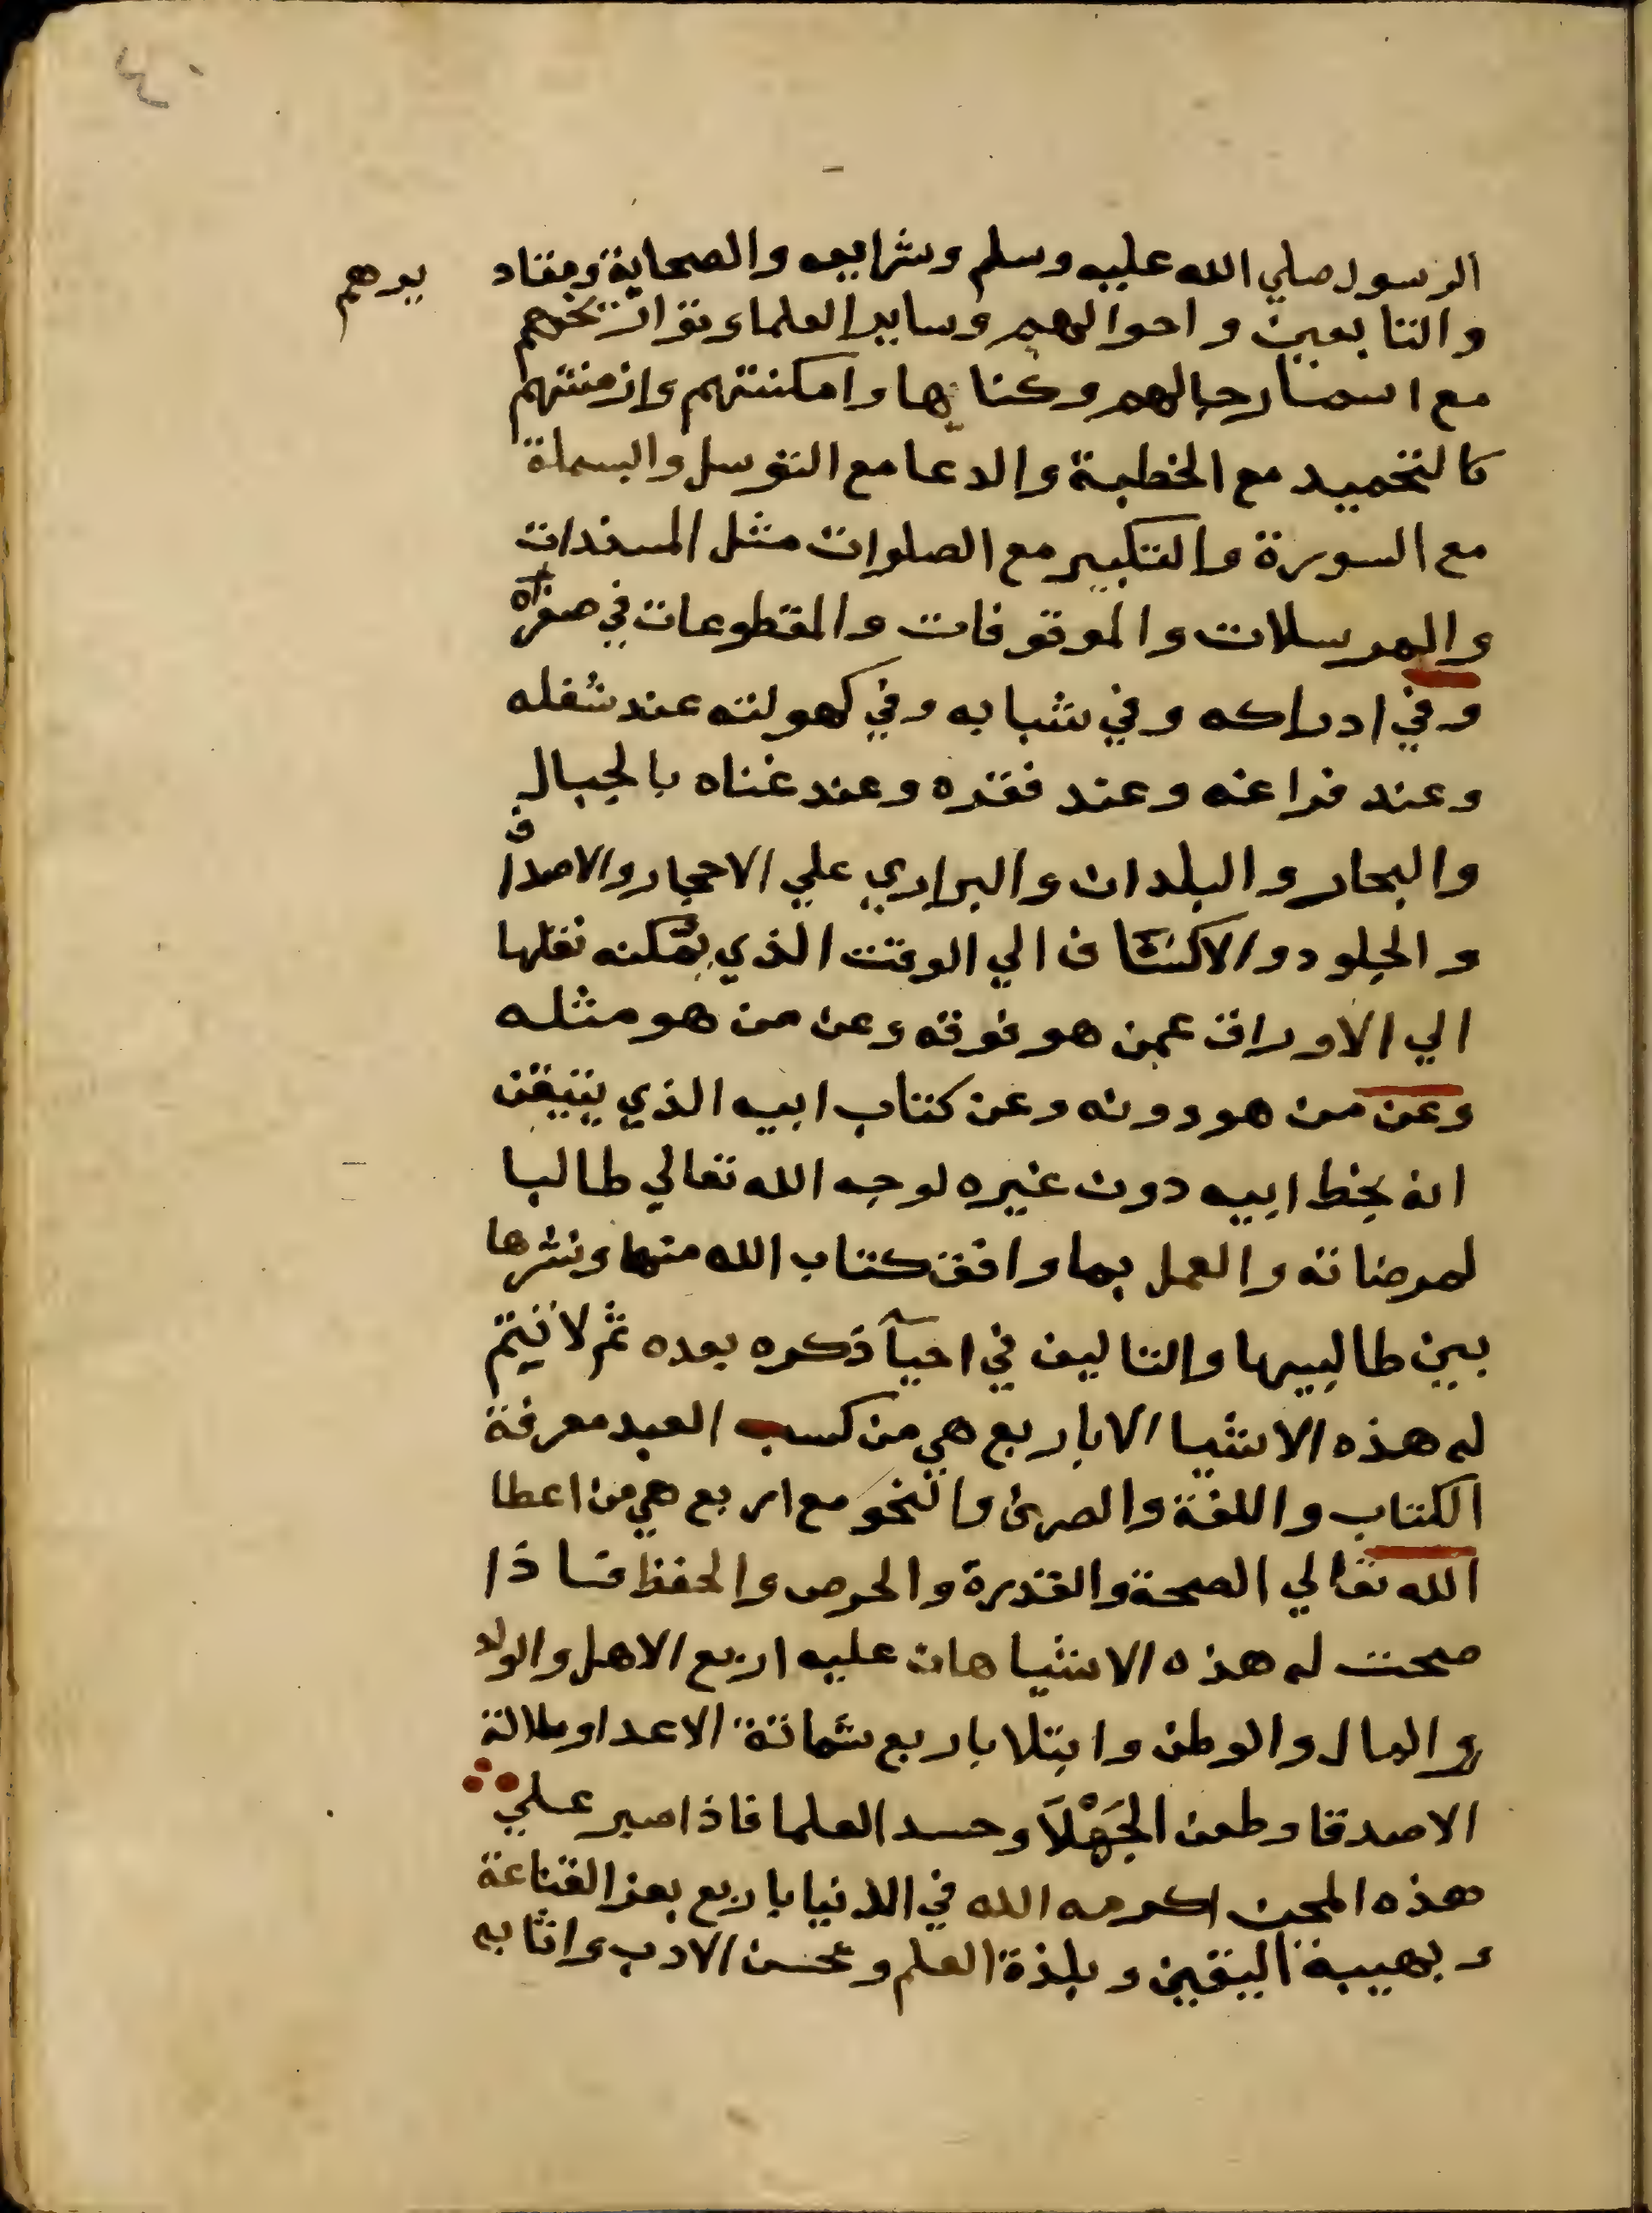 ٣٠
الرسول صلي الله عليه وسلم وشرايعه والصحابة ومقاد يرهم
والتابعين واحوالهم وساير العلماء وتواريخهم
مع اسما رجالهم وكناها وامكنتهم وازمنتهم
كالتحميد مع الخطبة والدعا مع التوسل والبسملة
مع السورة والتكبير مع الصلوات مثل المسندات
والمرسلات والموقوفات والمقطوعات في صغره
وفي ادراكه وفي شبابه وفي كهولته عند شغله
وعند فراغه وعند فقره وعند غناه بالجبال
والبحار والبلدان والبراري علي الاحجار والاصداف
والجلود والاكتاف الي الوقت الذي يمكنه نقلها
الي الاوراق عمن هو فوقه وعن من هو مثله
وعن من هو دونه وعن كتاب ابيه الذي يتيقن
انه بخط ابيه دون غيره لوجه الله تعالي طالبا
لمرضاته والعمل بما وافق كتاب الله منها ونشرها
بين طالبيها والتاليف في احيآ ذكره بعده ثم لا يتم
له هذه الاشيا الا باربع هي من كسب العبد معرفة
الكتاب واللغة والصرف والنحو مع اربع هي من اعطا
الله تعالي الصحة والقدرة والحرص والحفظ فاذا
صحت له هذه الاشيا هان عليه اربع الاهل والولد
والمال والوطن وابتلا باربع شماتة الاعدا وملالة
الاصدقا وطعن الجَهْلَا وحسد العلما فاذا صبر علي
هذه المحن اكرمه الله في الدنيا باربع بعز القناعة
وبهيبة اليقين وبلذة العلم وبحسن الادب واثابه